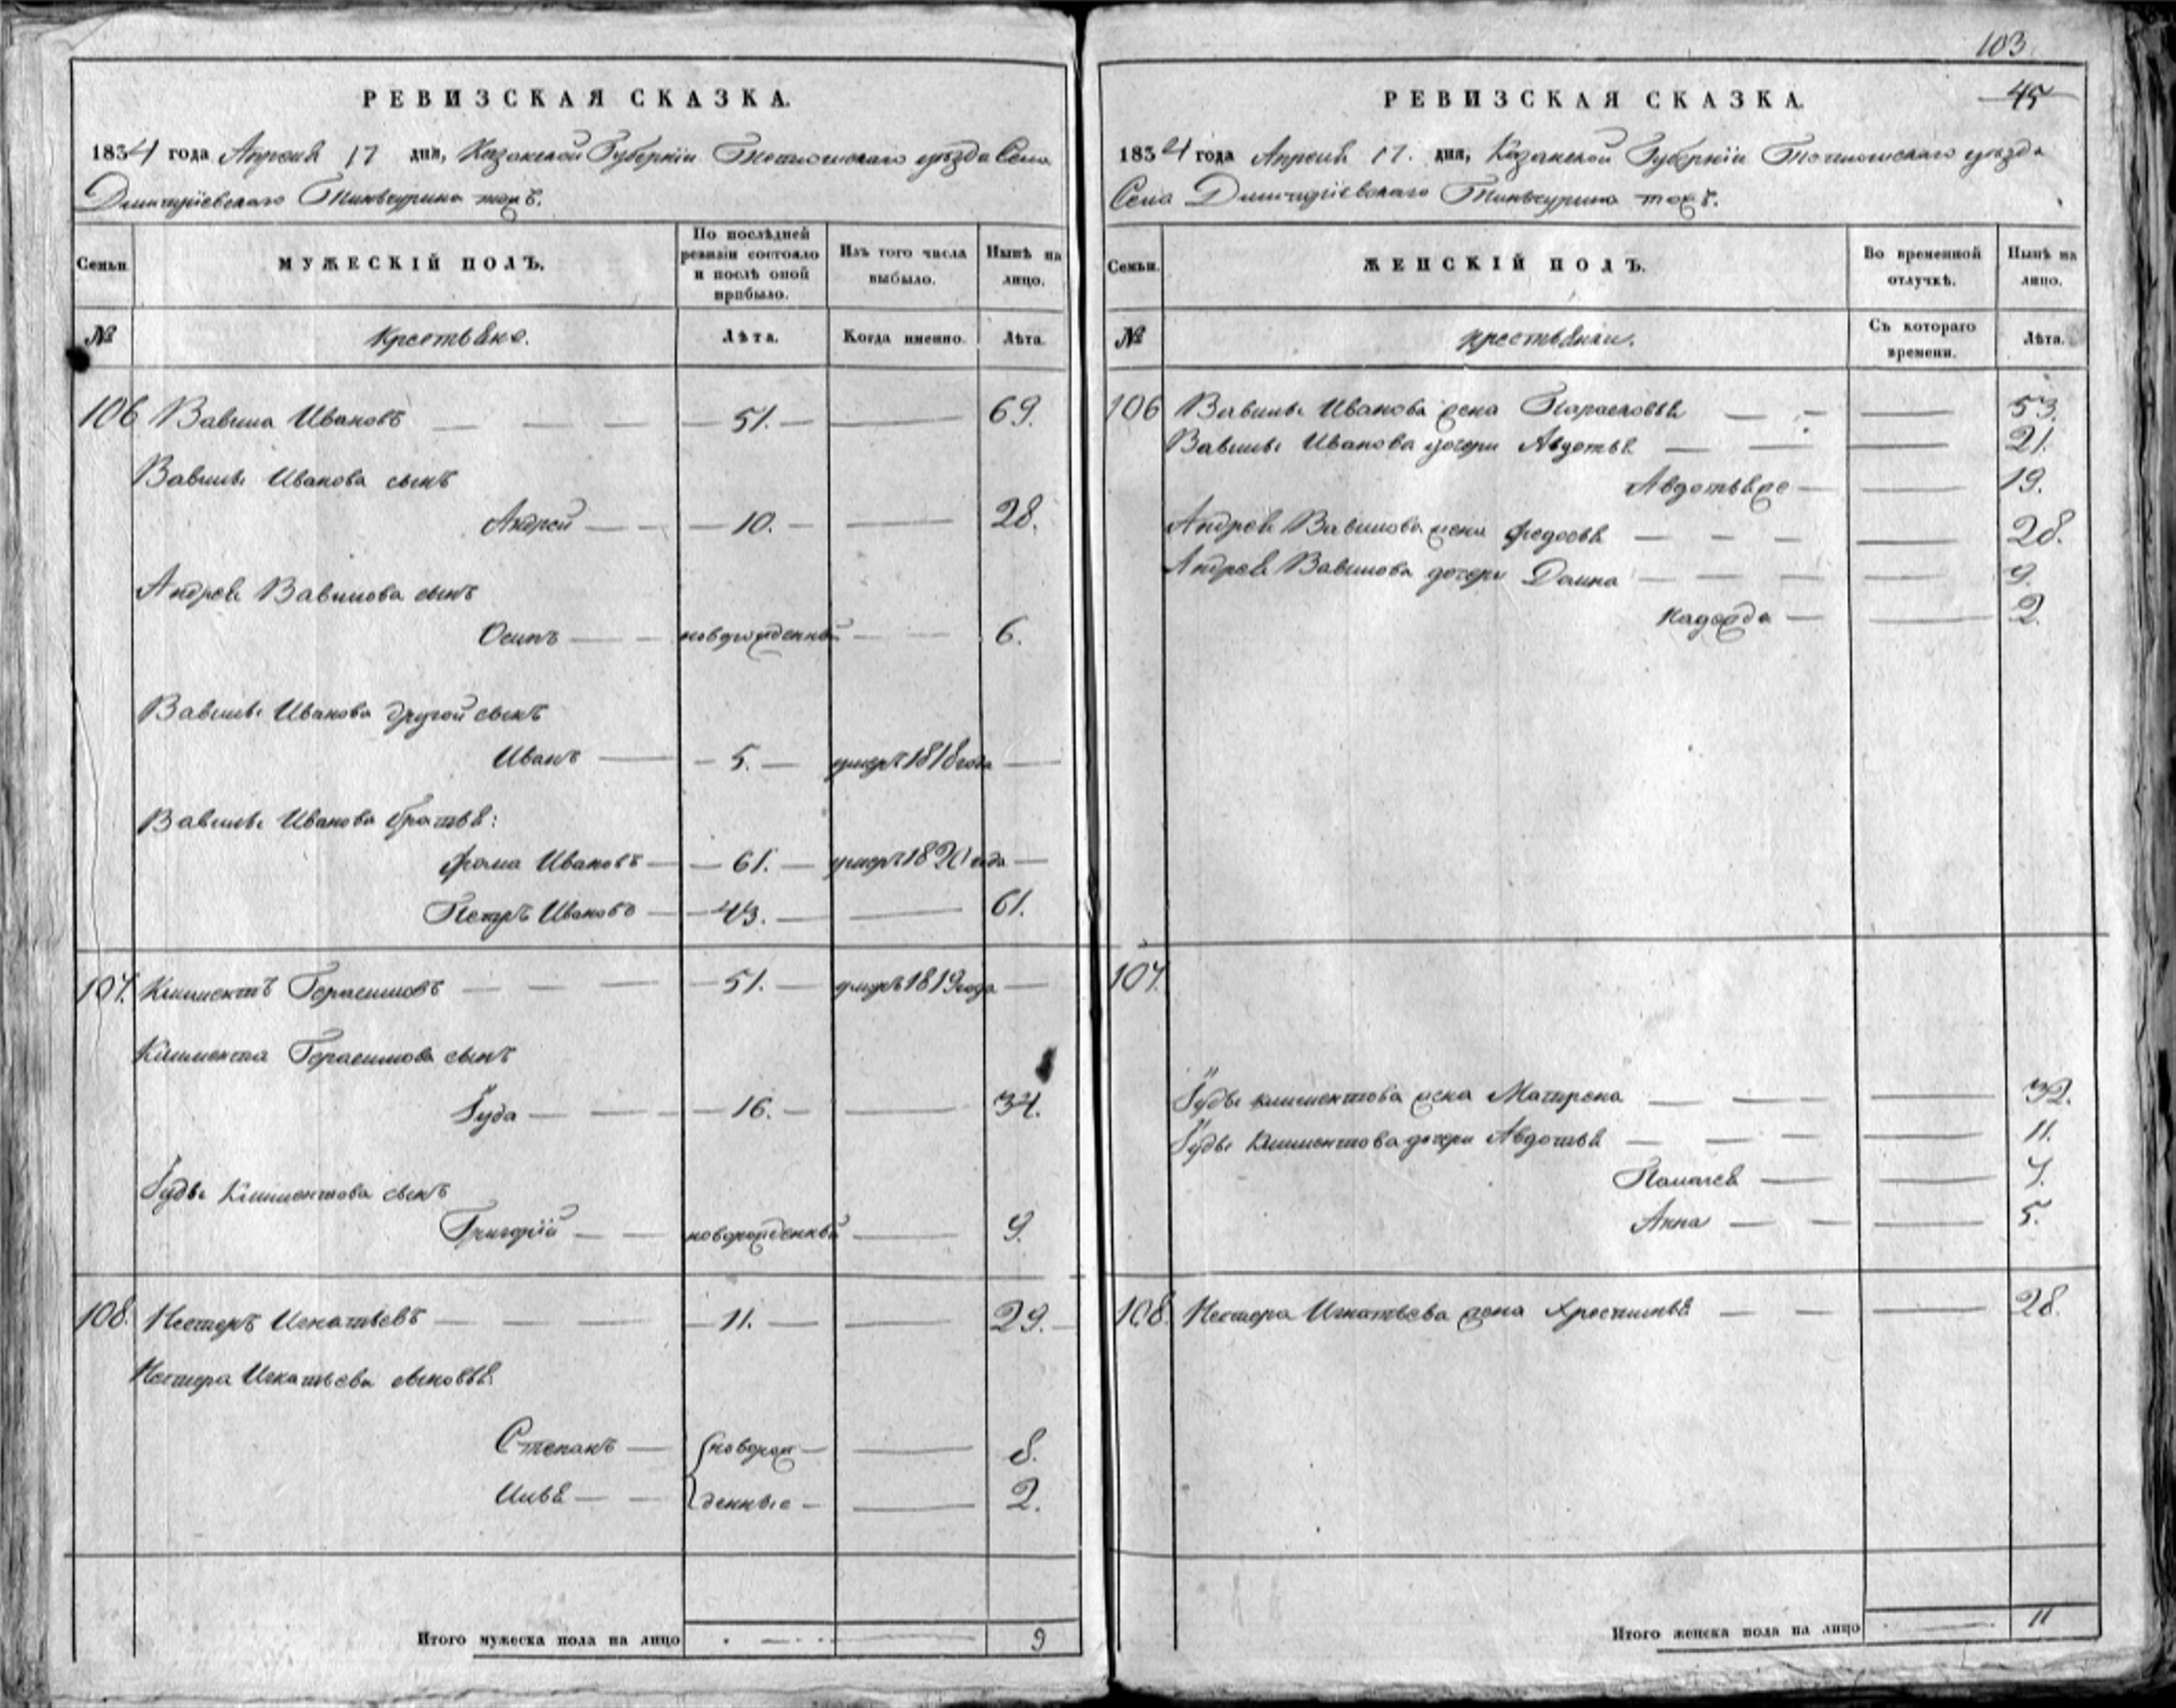 РЕВИЗСКАЯ СКАЗКА.
1834 года Апреля 17 дня, Казанской Губернiи Тетюшскаго уезда Села
Дмитрiевскаго Тинчурина тожъ.
Семьи
МУЖЕСКIЙ ПОЛЪ.
По послѣдней ревизiи состояло и послѣ оной прибыло.
Изъ того числа выбыло.
Нынѣ на лицо.
№
Крестьяне.
Лѣта.
Когда именно.
Лѣта.
106 Вавила Ивановъ — 51. — 69.
Вавилы Иванова сынъ
Андрей — 10. — 28.
Андрея Вавилова сынъ
Осипъ — новорожденный — 6.
Вавилы Иванова другой сынъ
Иванъ — 5. — умеръ 1818 года —
Вавилы Иванова братья:
Фома Ивановъ — 61. — умеръ 1820 года —
Петръ Ивановъ — 43. — 61.
107. Климентъ Герасимовъ — 51. — умеръ 1819 года —
Климента Герасимова сынъ
Iуда — 16. — 34.
Iуды Климентова сынъ
Григорiй — новорожденный — 9.
108. Нестеръ Игнатьевъ — 11. — 29.
Нестера Игнатьева сыновья:
Степанъ — новорож — 8.
Илья — денные — 2.
Итого мужеска пола на лицо 9
103
45
РЕВИЗСКАЯ СКАЗКА.
1834 года Апреля 17. дня, Казанской Губернiи Тетюшскаго уезда
Села Дмитрiевскаго Тинчурина тожъ.
Семьи.
ЖЕНСКIЙ ПОЛЪ.
Во временной отлучкѣ.
Нынѣ на лицо.
№
крестьянки.
Съ котораго времени.
Лѣта.
106 Вавилы Иванова жена Парасковья — 53.
Вавилы Иванова дочери Авдотья — 21.
Авдотья же — 19.
Андрея Вавилова жена Федосья — 28.
Андрея Вавилова дочери Домна — 9.
Надежда — 2.
107.
Iуды Климентова жена Матрена — 32.
Iуды Климентова дочери Авдотья — 11.
Пелагея — 7.
Анна — 5.
108. Нестера Игнатьева жена Хрестинья — 28.
Итого женска пола на лицо 11